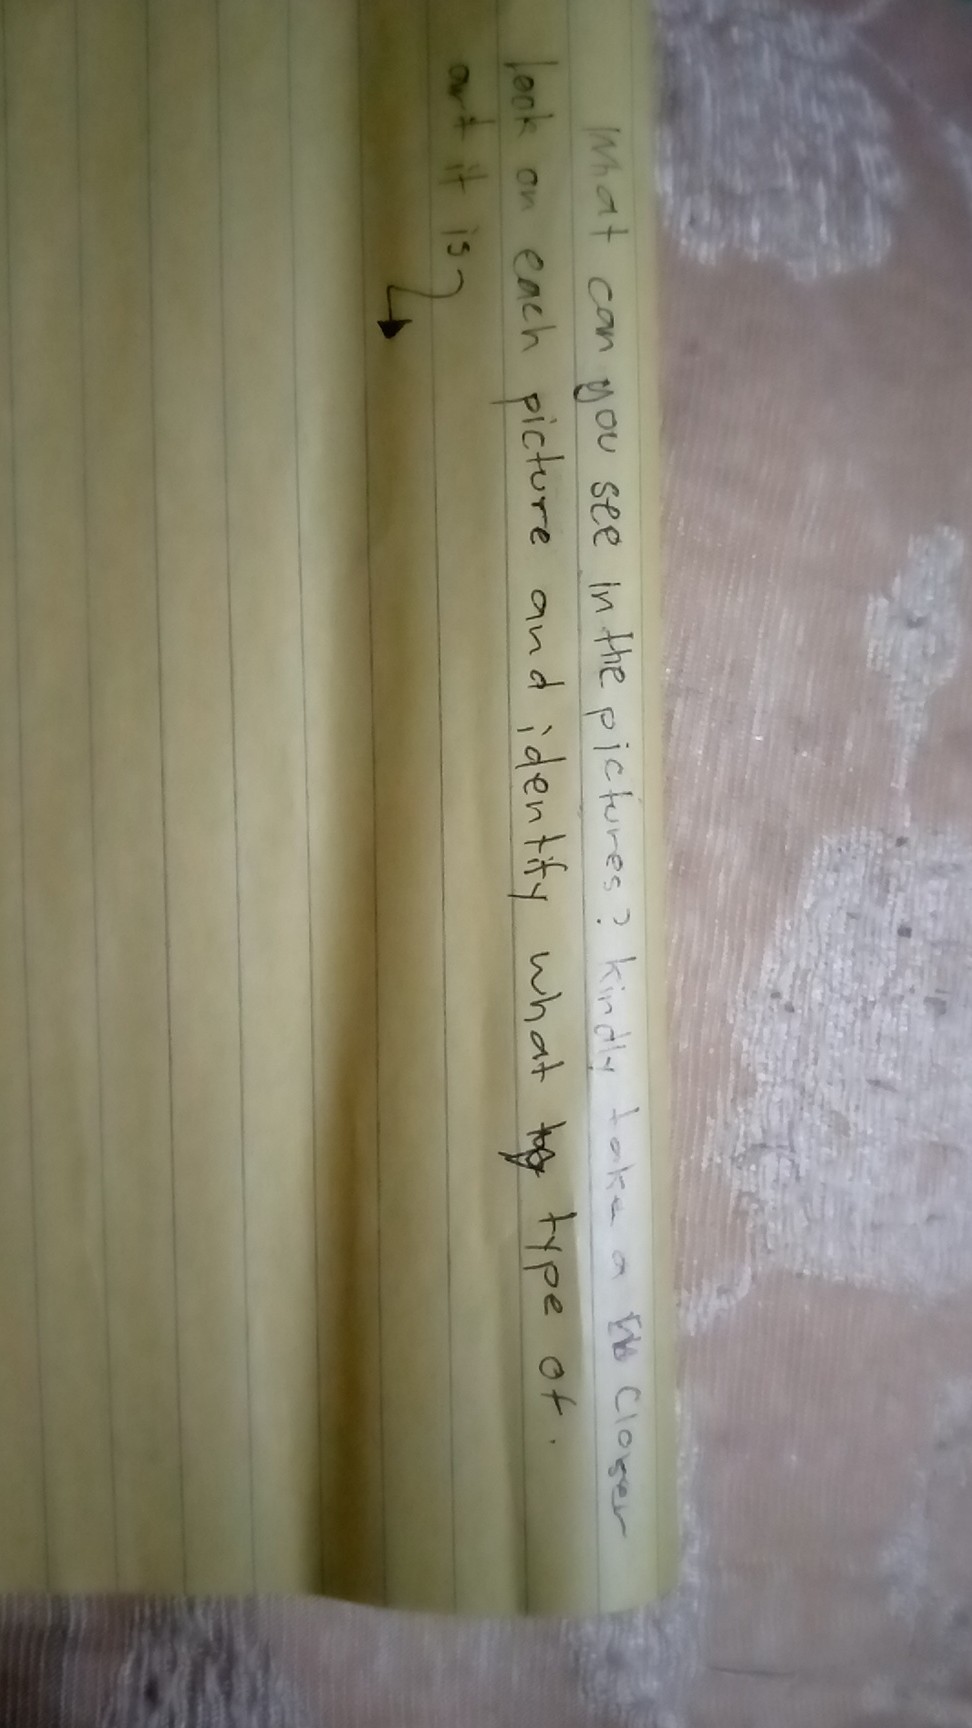 What can you see in the pictures? kindly take a closer
look on each picture and identify what type of.
art it is